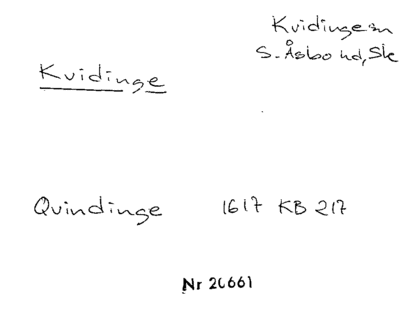 Kvidinge sn
S. Åsbo hd, Sk
Kvidinge
Quindinge 1617 KB 217
Nr 20661